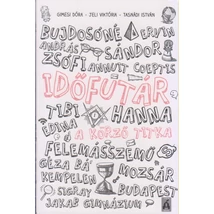 GIMESI DÓRA • JELI VIKTÓRIA • TASNÁDI ISTVÁN
BUJDOSÓNÉ ERVIN
ANDRÁS SÁNDOR
ZSÓFI ANNUIT COEPTIS
IDŐFUTÁR
TIBI HANNA
EDINA A KÖRZŐ TITKA
FELEMÁSSZEMŰ
GÉZA BÁ MOZSÁR
KEMPELEN BUDAPEST
SIGRAY
JAKAB GIMNÁZIUM